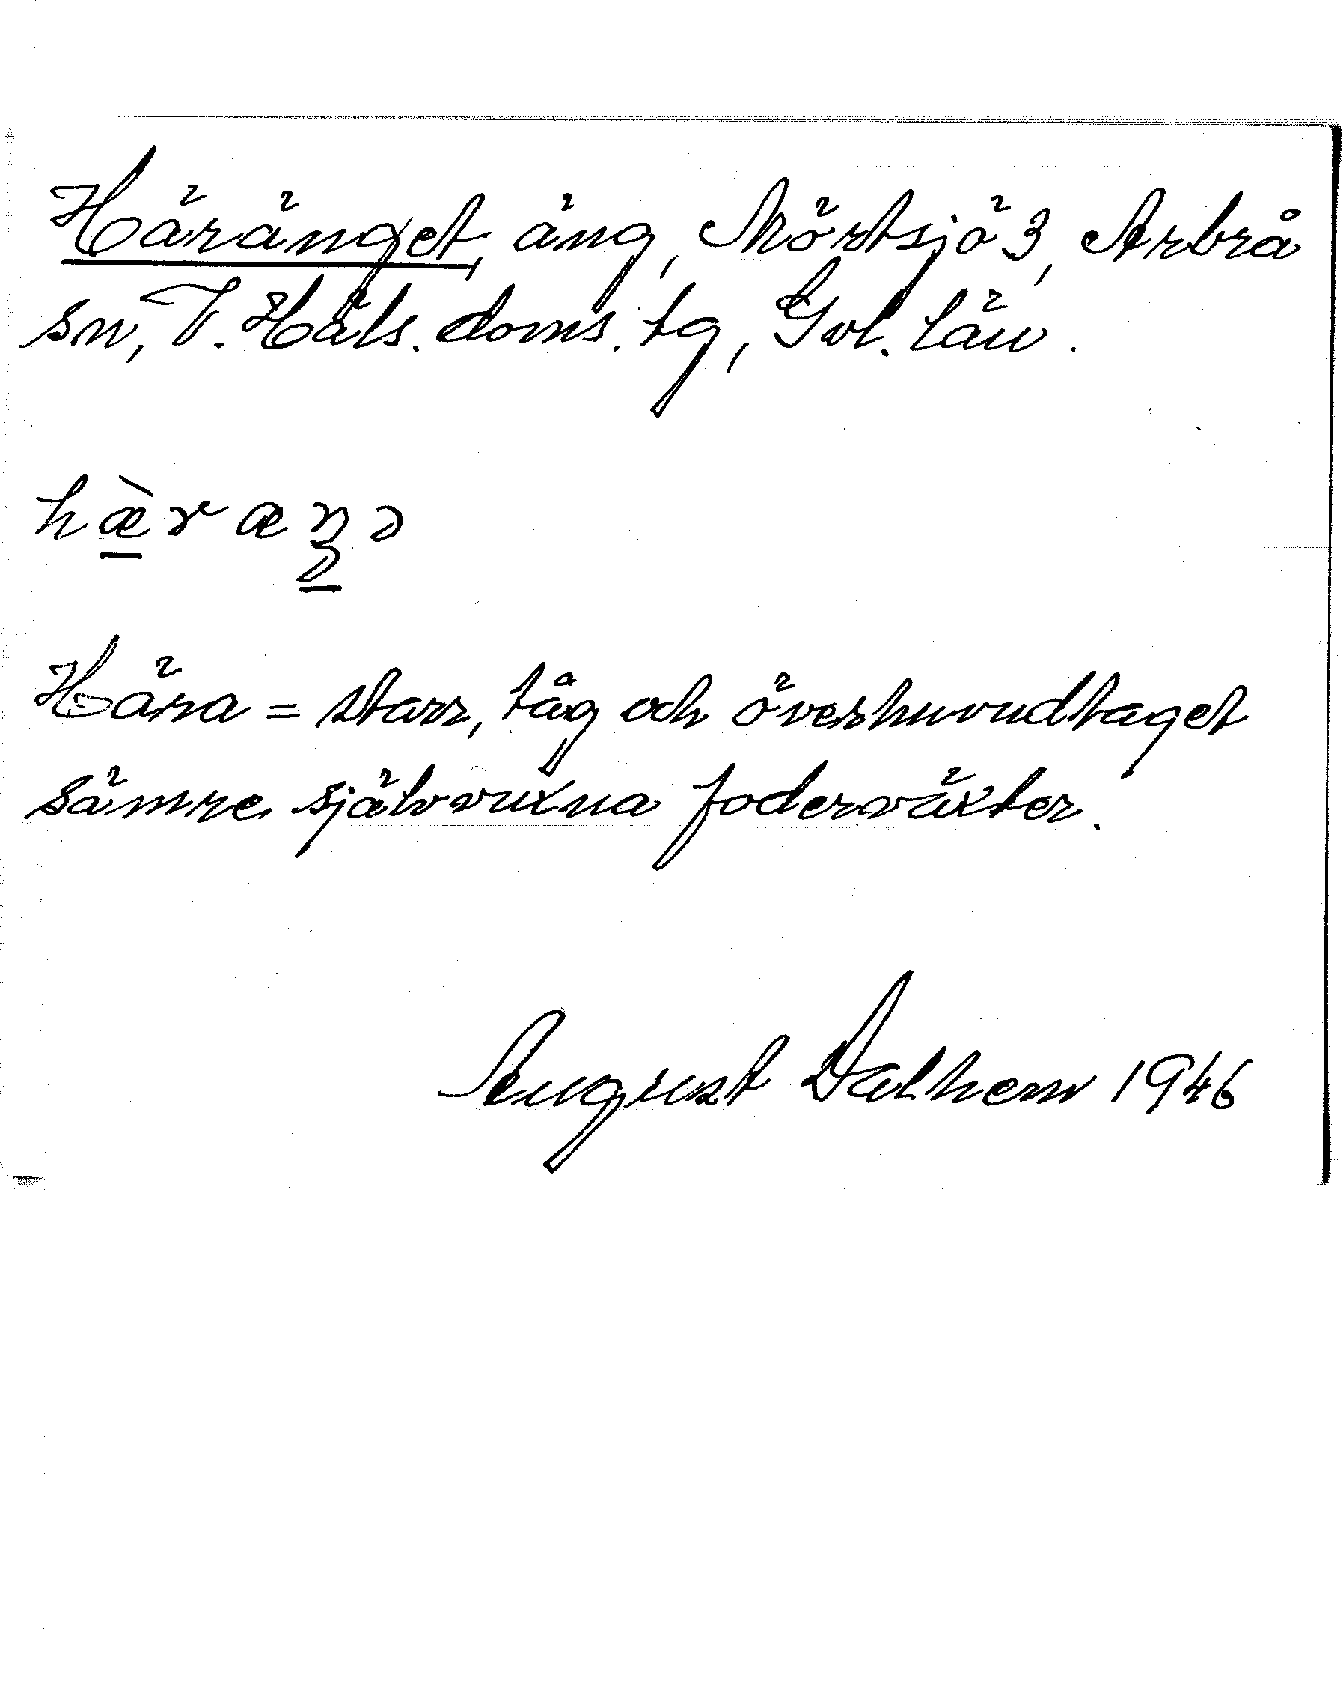 Häränget, äng, Mörtsjö 3, Arbrå
sn, V. Häls. doms. tg, Gvl. län.
hæ̀ræŋə
Hära = starr, tåg och överhuvudtaget
sämre självvuxna foderväxter.
August Dalhem 1946